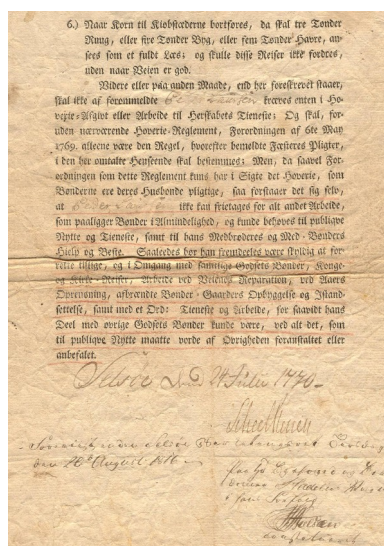 6.) Naar Korn til Kiøbstæderne bortføres, da skal tre Tønder
Ruug, eller fire Tønder Byg, eller fem Tønder Havre, an-
sees som et fuldt Læs; og skulle disse Reiser ikke fordres,
uden naar Veien er god.
Videre eller paa anden Maade, end her foreskrevet staaer,
skal ikke af forommeldte kræves enten i Ho-
verie-Afgivt eller Arbeide til Herskabets Tieneste; Og skal, for-
uden nærværende Hoverie-Reglement, Forordningen af 6te May
1769. alleene være den Regel, hvorefter bemeldte Fæsteres Pligter,
i den her omtalte Henseende skal bestemmes: Men, da saavel For-
ordningen som dette Reglement kuns har i Sigte det Hoverie, som
Bønderne ere deres Husbonde pligtige, saa forstaaer det sig selv,
at ikke kan frietages for alt andet Arbeide,
som paaligger Bønder i Almindelighed, og kunde behøves til publiqve
Nytte og Tieneste, samt til hans Medbrødres og Med-Bønders
Hielp og Beste. Saaledes bør han fremdeeles være skyldig at for-
rette tillige, og i Omgang med samtlige Godsets Bønder, Konge-
og Kirke-Reiser, Arbeide ved Veienes Reparation, ved Aaers
Oprensning, afbrændte Bønder-Gaarders Opbyggelse og Istand-
settelse, samt med et Ord: Tieneste og Arbeide, for saavidt hans
Deel med øvrige Godsets Bønder kunde være, ved alt det, som
til publiqve Nytte maatte vorde af Øvrigheden foranstaltet eller
anbefalet.
Selsøe 1770
August 1816